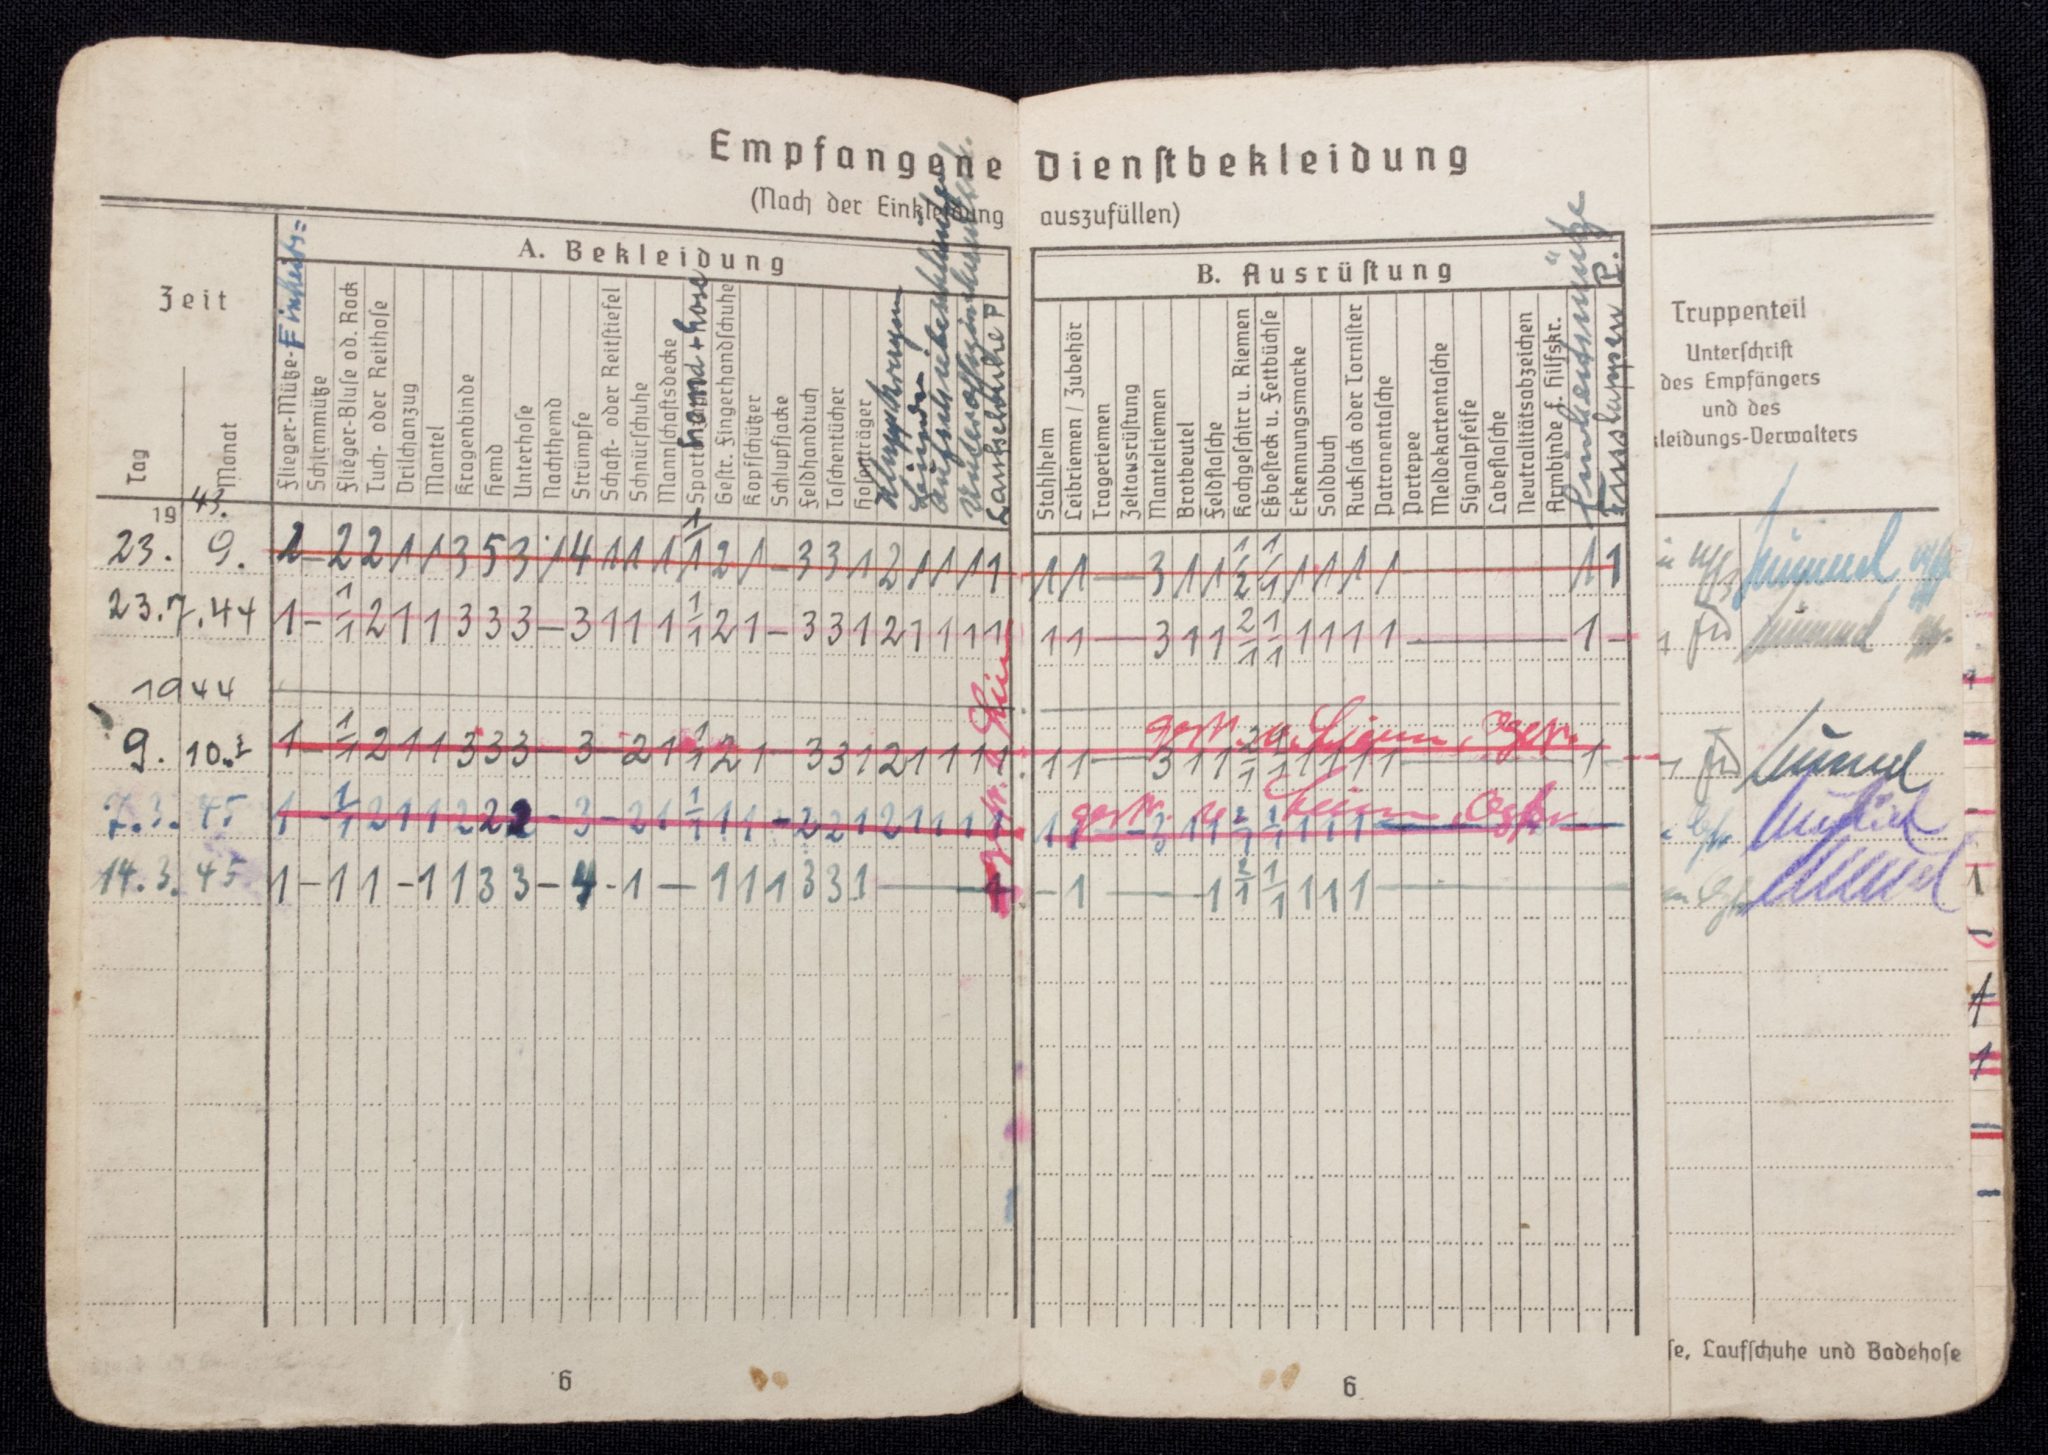 Empfangene Dienstbekleidung
(Nach der Einkleidung auszufüllen)
Zeit
A. Bekleidung
B. Ausrüstung
Truppenteil
Unterschrift
des Empfängers
und des
kleidungs-Verwalters
Tag
Monat
Flieger-Mütze- Einheits=
Schirmmütze
Flieger-Bluse od. Rock
Tuch- oder Reithose
Drillichanzug
Mantel
Kragenbinde
Hemd
Unterhose
Nachthemd
Strümpfe
Schaft- oder Reitstiefel
Schnürschuhe
Mannschaftsdecke
Sport hemd + hose
Gestr. Fingerhandschuhe
Kopfschützer
Schlupfjacke
Feldhandtuch
Taschentücher
Hosenträger
Laufschuhe P
Stahlhelm
Leibriemen / Zubehör
Trageriemen
Zeltausrüstung
Mantelriemen
Brotbeutel
Feldflasche
Kochgeschirr u. Riemen
Eßbesteck u. Fettbüchse
Erkennungsmarke
Soldbuch
Rucksack oder Tornister
Patronentasche
Portepee
Meldekartentasche
Signalpfeife
Labeflasche
Neutralitätsabzeichen
Armbinde f. Hilfskr.
Einheitsmütze
Fusslappen P.
19 43.
23. 9. 1 – 2 2 1 1 3 5 3 1 4 1 1 1 1 2 1 – 3 3 1 2 1 1 1 1 1 1 — 3 1 1 1/2 1/1 1 1 1 1 — 1 1
23. 7. 44 1 – 1/1 2 1 1 3 3 3 – 3 1 1 1 1/1 2 1 – 3 3 1 2 1 1 1 1 1 1 — 3 1 1 2/1 1/1 1 1 1 1 — 1 –
1944
9. 10. 1 – 1/1 2 1 1 3 3 3 – 3 – 2 1 1/1 2 1 – 3 3 1 2 1 1 1 1 1 1 — 3 1 1 2/1 1/1 1 1 1 1 — 1 –
7. 3. 45 1 – 1/1 2 1 1 2 2 2 – 3 – 2 1 1/1 1 1 – 2 2 1 2 1 1 1 1 1 1 — 3 1 1 2/1 1/1 1 1 1 —
14. 3. 45 1 – 1 1 – 1 1 3 3 – 4 – 1 — 1 1 1 3 3 1 — – 1 — 1 2/1 1/1 1 1 1 —
se, Laufschuhe und Badehose
6
6